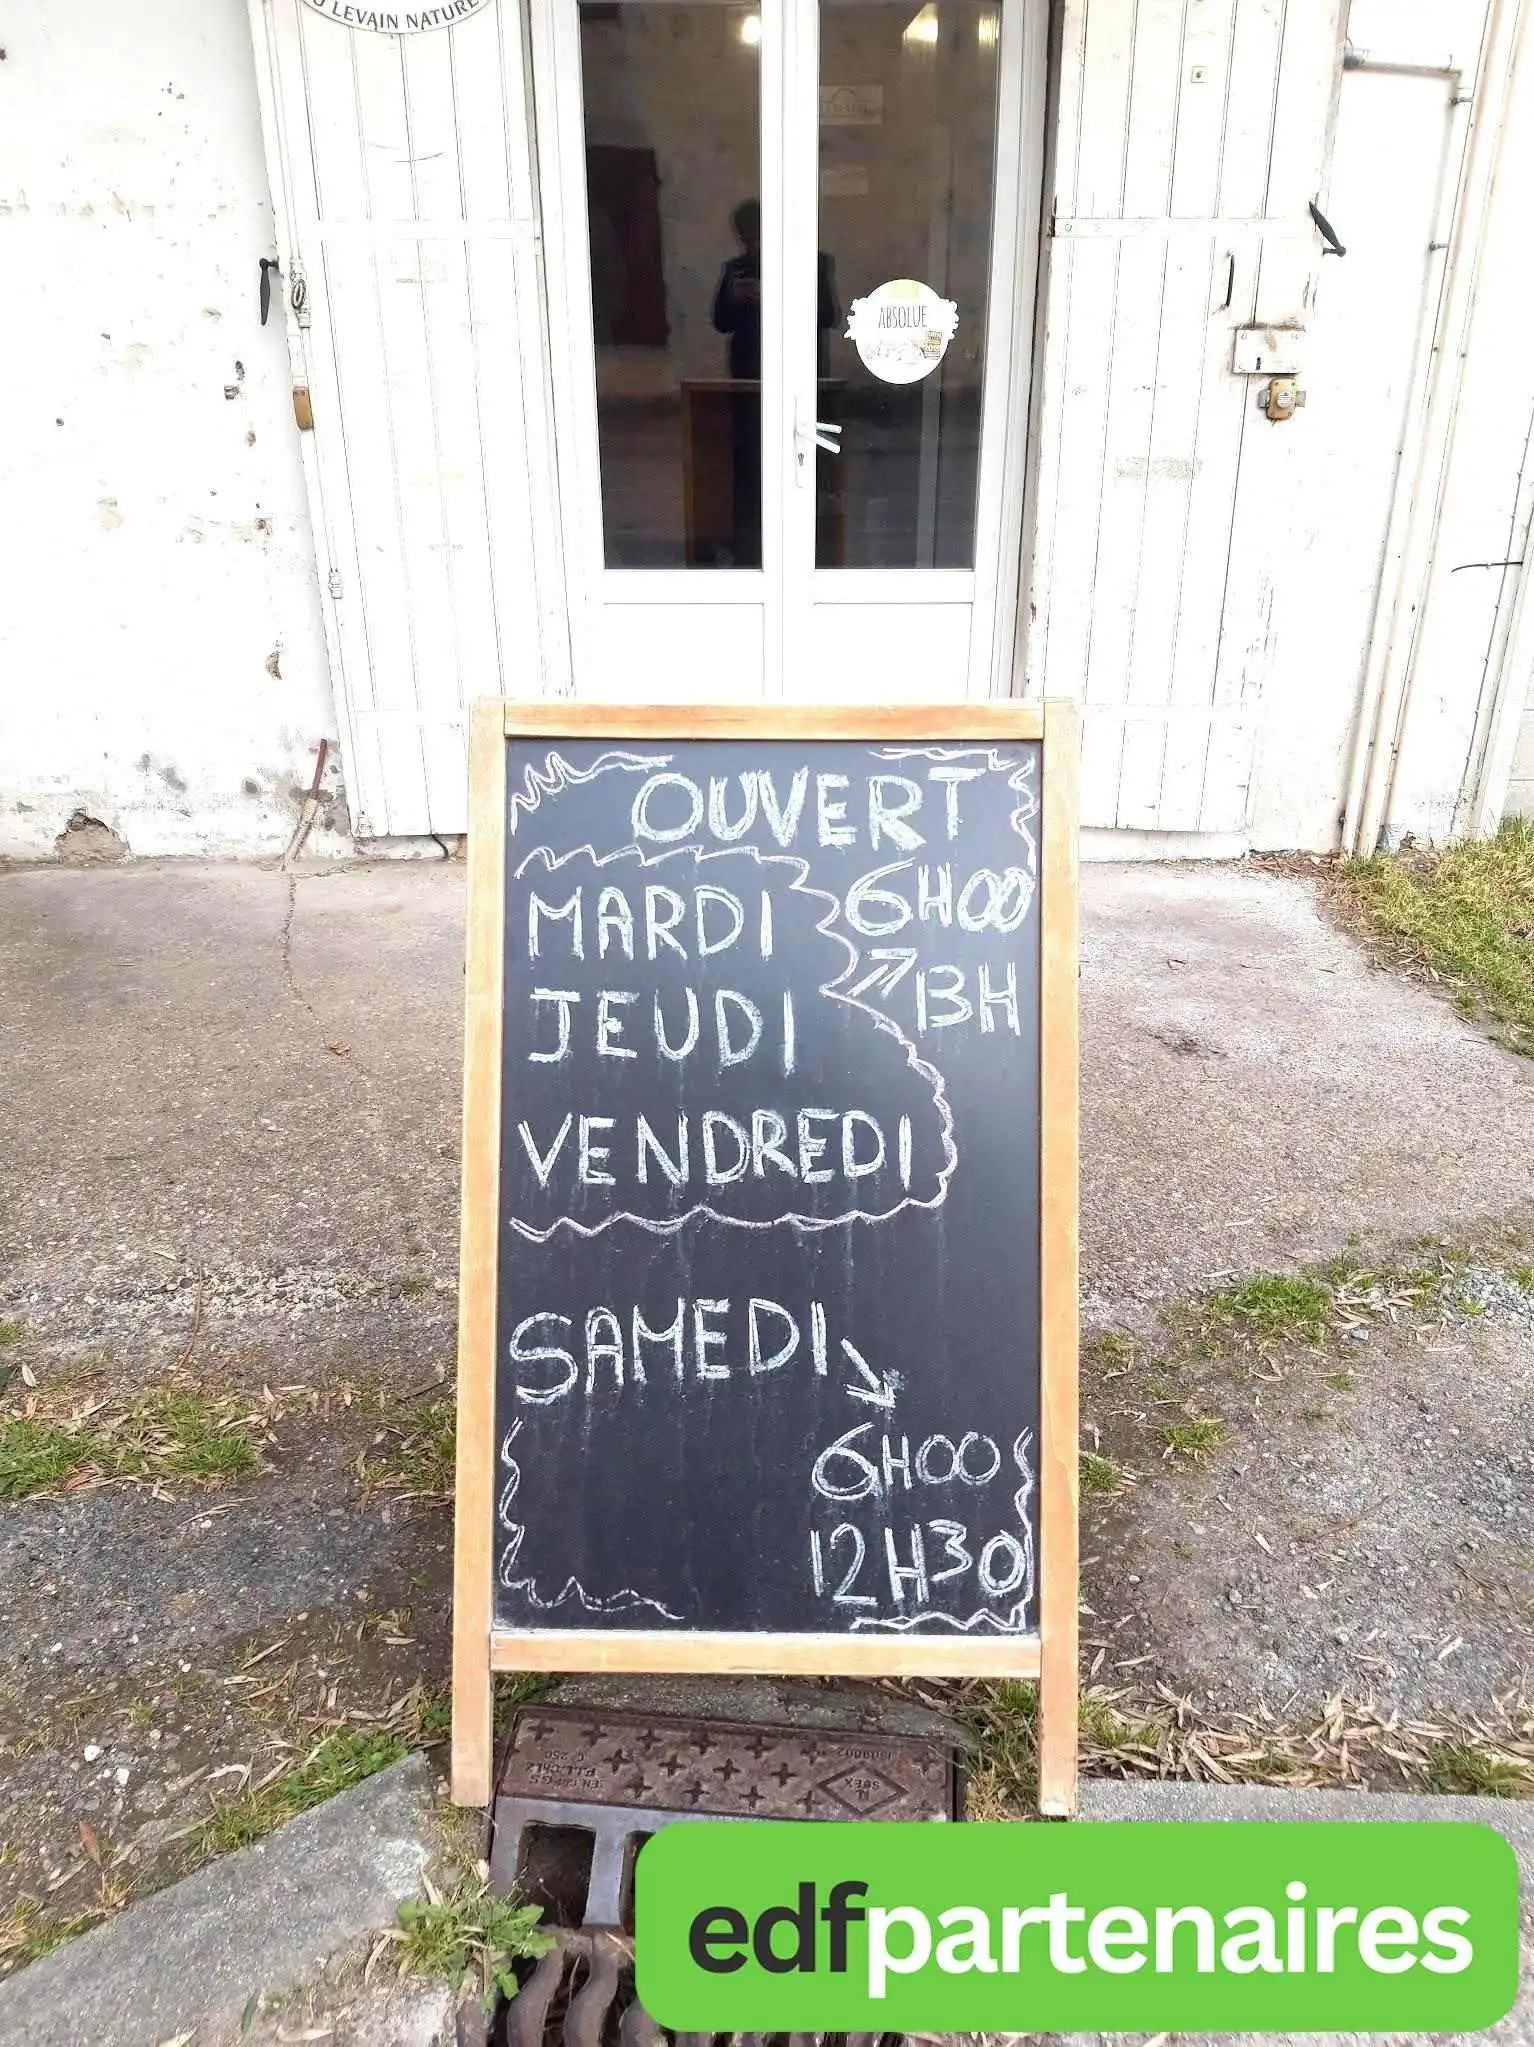 U LEVAIN NATURE
ABSOLUE
OUVERT
MARDI 6H00
JEUDI 13H
VENDREDI
SAMEDI
6H00
12H30
edfpartenaires